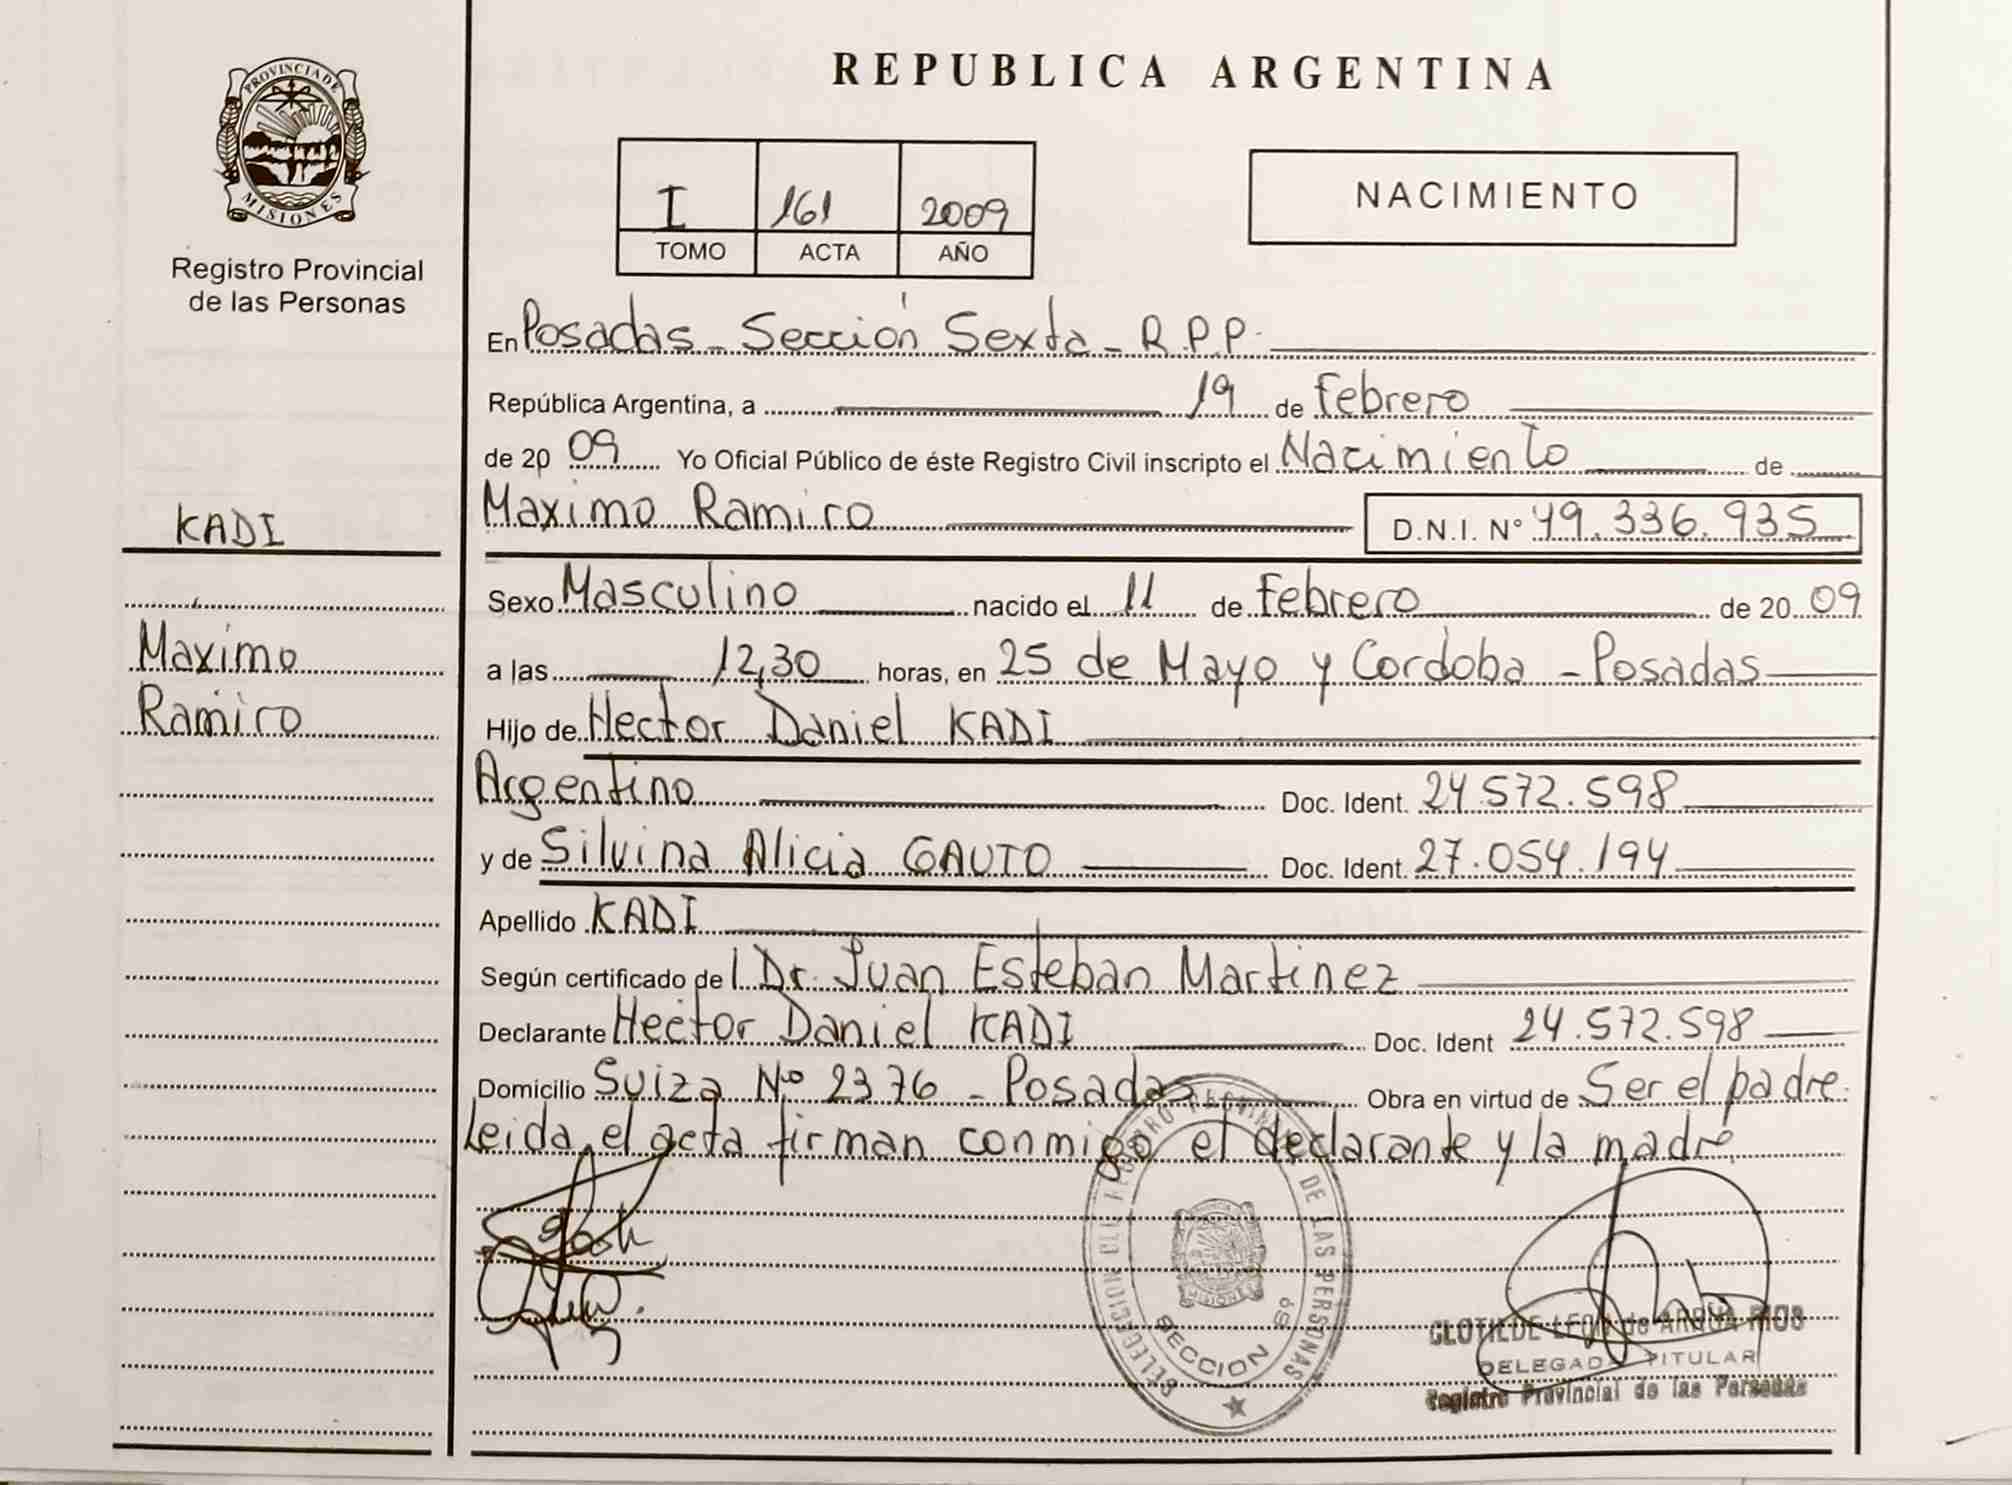 PROVINCIA DE
MISIONES
Registro Provincial
de las Personas
KADI
Maximo
Ramiro
REPUBLICA ARGENTINA
I 161 2009
TOMO ACTA AÑO
NACIMIENTO
En Posadas - Sección Sexta - R.P.P.
República Argentina, a 19 de Febrero
de 20 09 Yo Oficial Público de éste Registro Civil inscripto el Nacimiento de
Maximo Ramiro D.N.I. Nº 49.336.935
Sexo Masculino nacido el 11 de Febrero de 20 09
a las 12,30 horas, en 25 de Mayo y Cordoba - Posadas
Hijo de Hector Daniel KADI
Argentino Doc. Ident. 24.572.598
y de Silvina Alicia GAUTO Doc. Ident. 27.054.194
Apellido KADI
Según certificado de l Dr. Juan Esteban Martinez
Declarante Hector Daniel KADI Doc. Ident 24.572.598
Domicilio Suiza Nº 2376 - Posadas Obra en virtud de Ser el padre.
Leida el acta firman conmigo el declarante y la madre
DE LAS PERSONAS
MISIONES
SECCION 6º
CLOTILDE LEON de ARRUA RIOS
DELEGADA TITULAR
Registro Provincial de las Personas